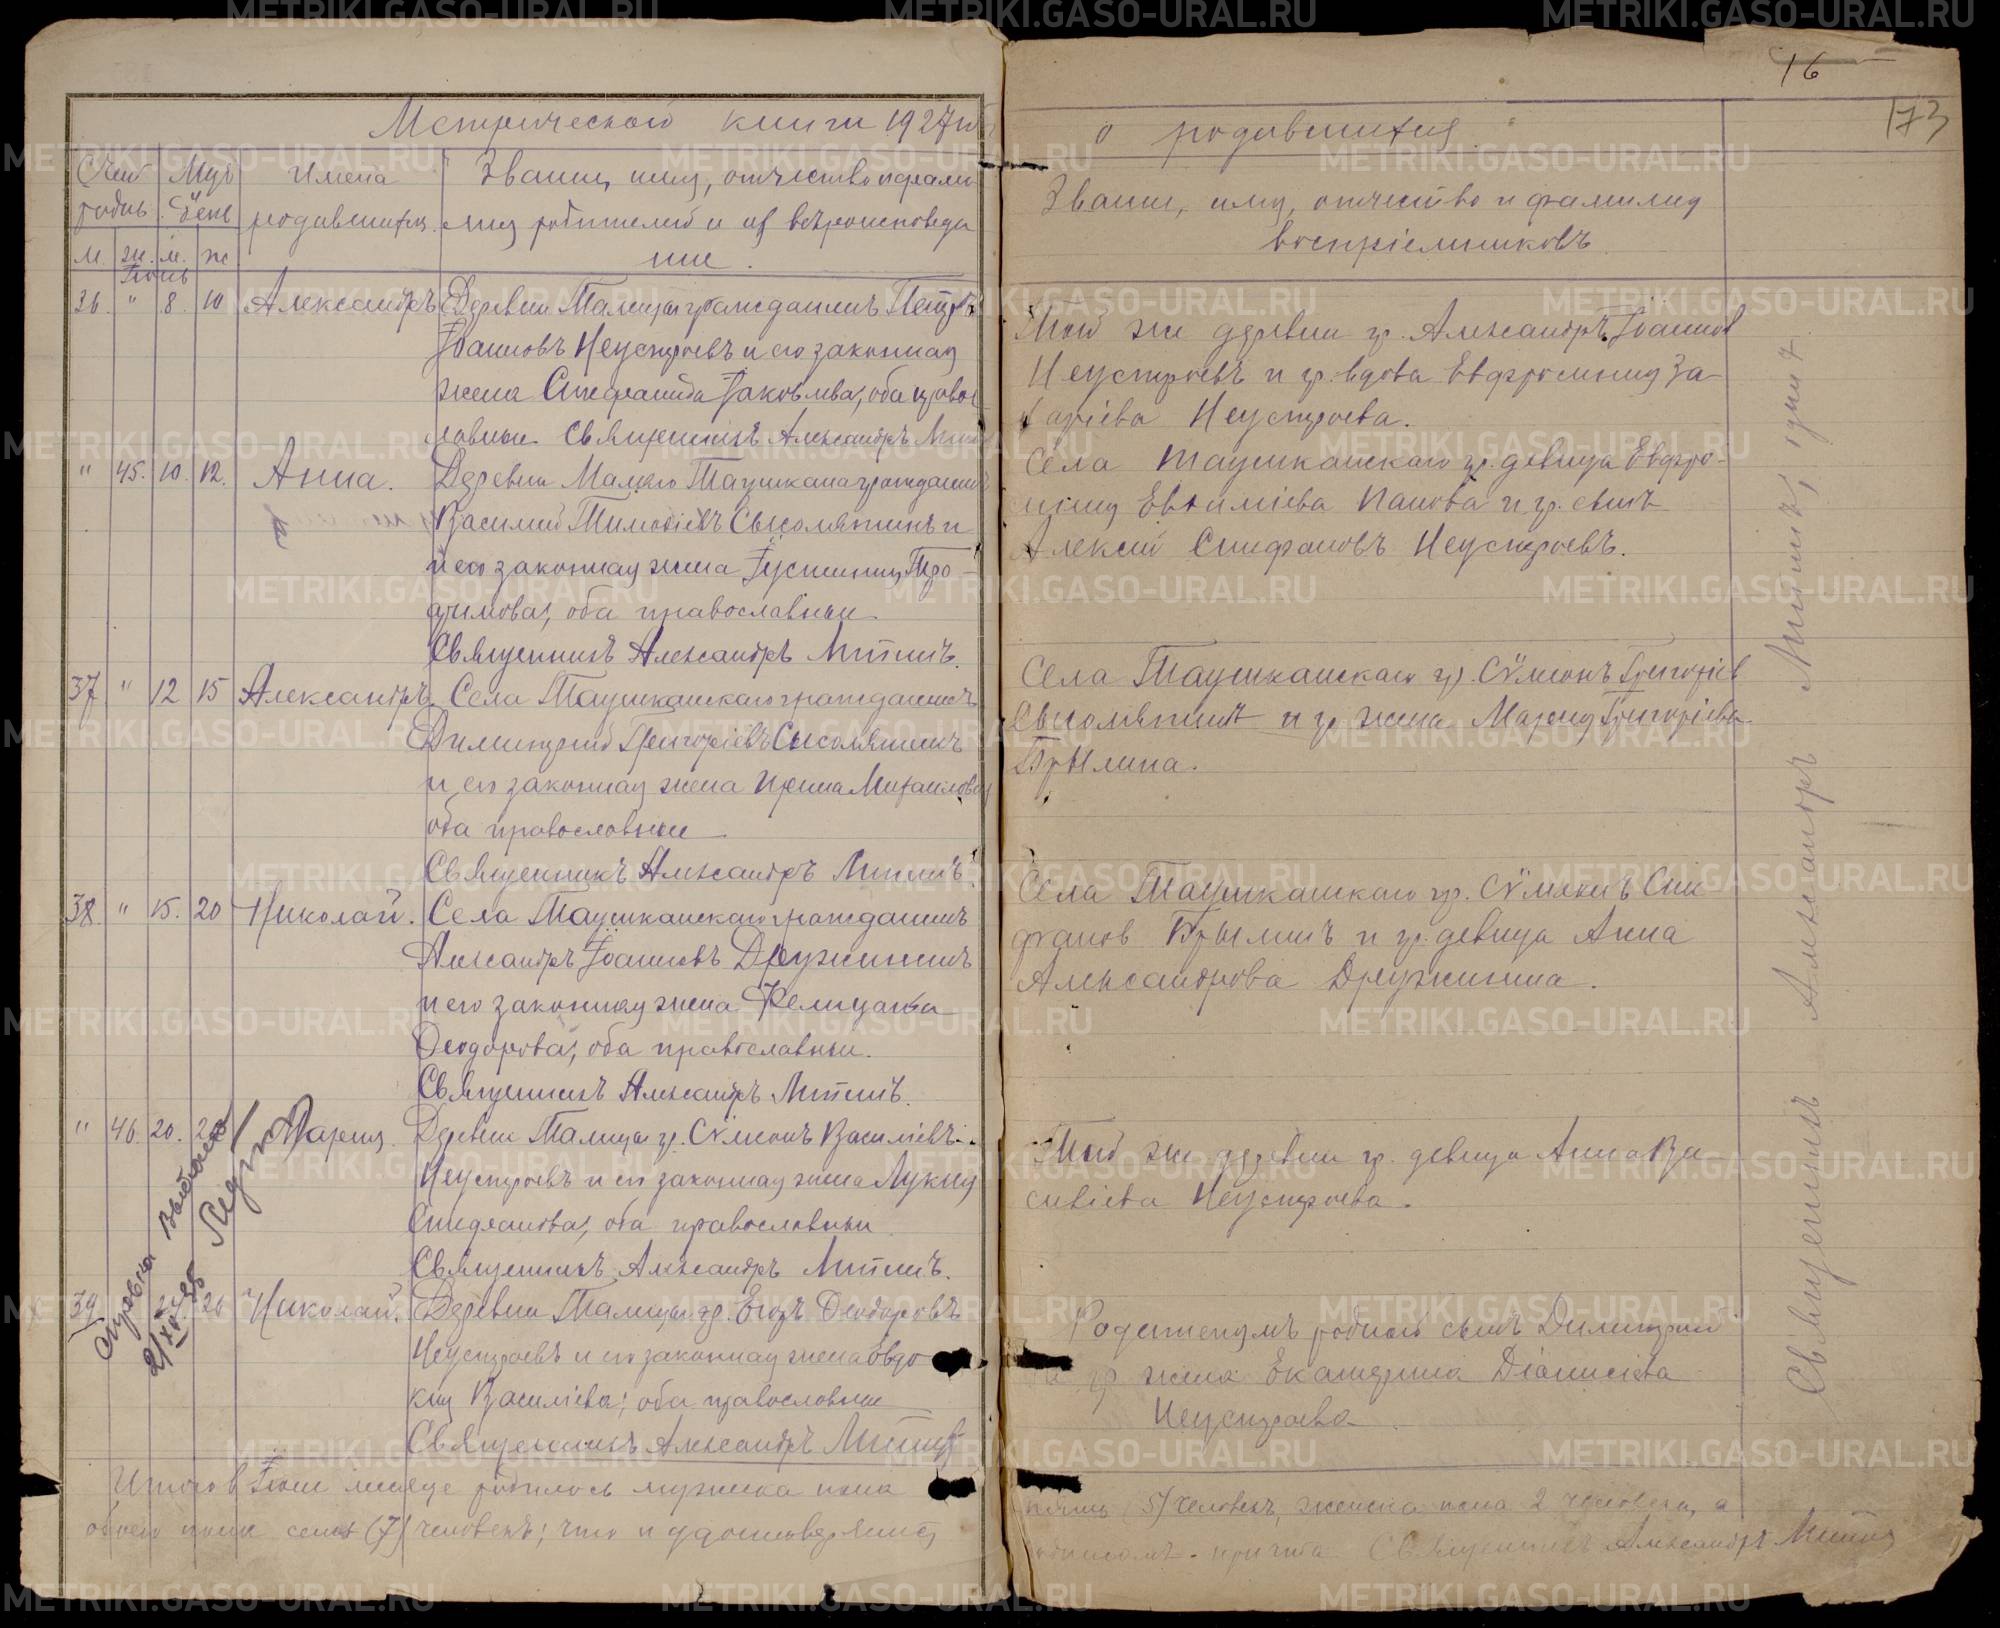 16
173
Метрической книги 1927 г.
о родившихся
Счет Муж.
родив. Жен.
м. ж. м. ж.
Имена
родившихся.
Звание, имя, отчество и фами-
лия родителей и их вероисповеда
ние.
Звание, имя, отчество и фамилия
воспріемниковъ
Іюнь
36. " 8. 10 Александръ
Деревни Талицы гражданинъ Петръ
Іоанновъ Неустроевъ и его законная
жена Стефанида Іаковлева, оба право
славные Священникъ Александръ
Той же деревни гр. Александръ Іоаннов
Неустроевъ и гр. вдова Евфросинія За
харіева Неустроева.
" 45. 10. 12. Анна.
Деревни Малаго Таушкана гражданинъ
Василий Тимофіевъ Сысолятинъ и
и его законная жена Іустинія Тро-
фимова, оба православные
Священникъ Александръ
Села Таушканскаго гр. девица Евфро-
синия Евфиміева Панова и гр. сынъ
Алексий Стефановъ Неустроевъ.
37 " 12 15 Александръ.
Села Таушканскаго гражданинъ
Димитрий Григоріевъ Сысолятинъ
и его законная жена Ирина Михаилова
оба православные
Священникъ Александръ
Села Таушканскаго гр. Сѵмеонъ Григоріев
Сысолятинъ и гр. жена Мария Григоріева
Брылина.
38. " 15. 20 Николай.
Села Таушканскаго гражданинъ
Александръ Іоанновъ Дружининъ
и его законная жена Фелицата
Феодорова, оба православные.
Священникъ Александръ
Села Таушканскаго гр. Сѵмеонъ Сте
фанов Брылинъ и гр. девица Анна
Александрова Дружинина.
" 46. 20. Мария.
Деревни Талицы гр. Сѵмеонъ Василіевъ
Неустроевъ и его законная жена Лукия
Стефанова, оба православные
Священникъ Александръ
Той же деревни гр. девица Анна Ва-
силіева Неустроева.
Справка выдана
2/XII-35
39 26 Николай.
Деревни Талицы гр. Егоръ Феодоровъ
Неустроевъ и его законная жена Овдо
кия Василіева; оба православные
Священникъ Александръ
Родителямъ родной сынъ Димитрий
гр жена Екатерина Діонисіева
Неустроева
Итого в Іюне месяце родилось мужска пола
обоего пола семь (7) человекъ; что и удостоверяемъ
(5) человекъ, женска пола 2 человека, а
причта Священникъ Александръ
Священникъ Александръ